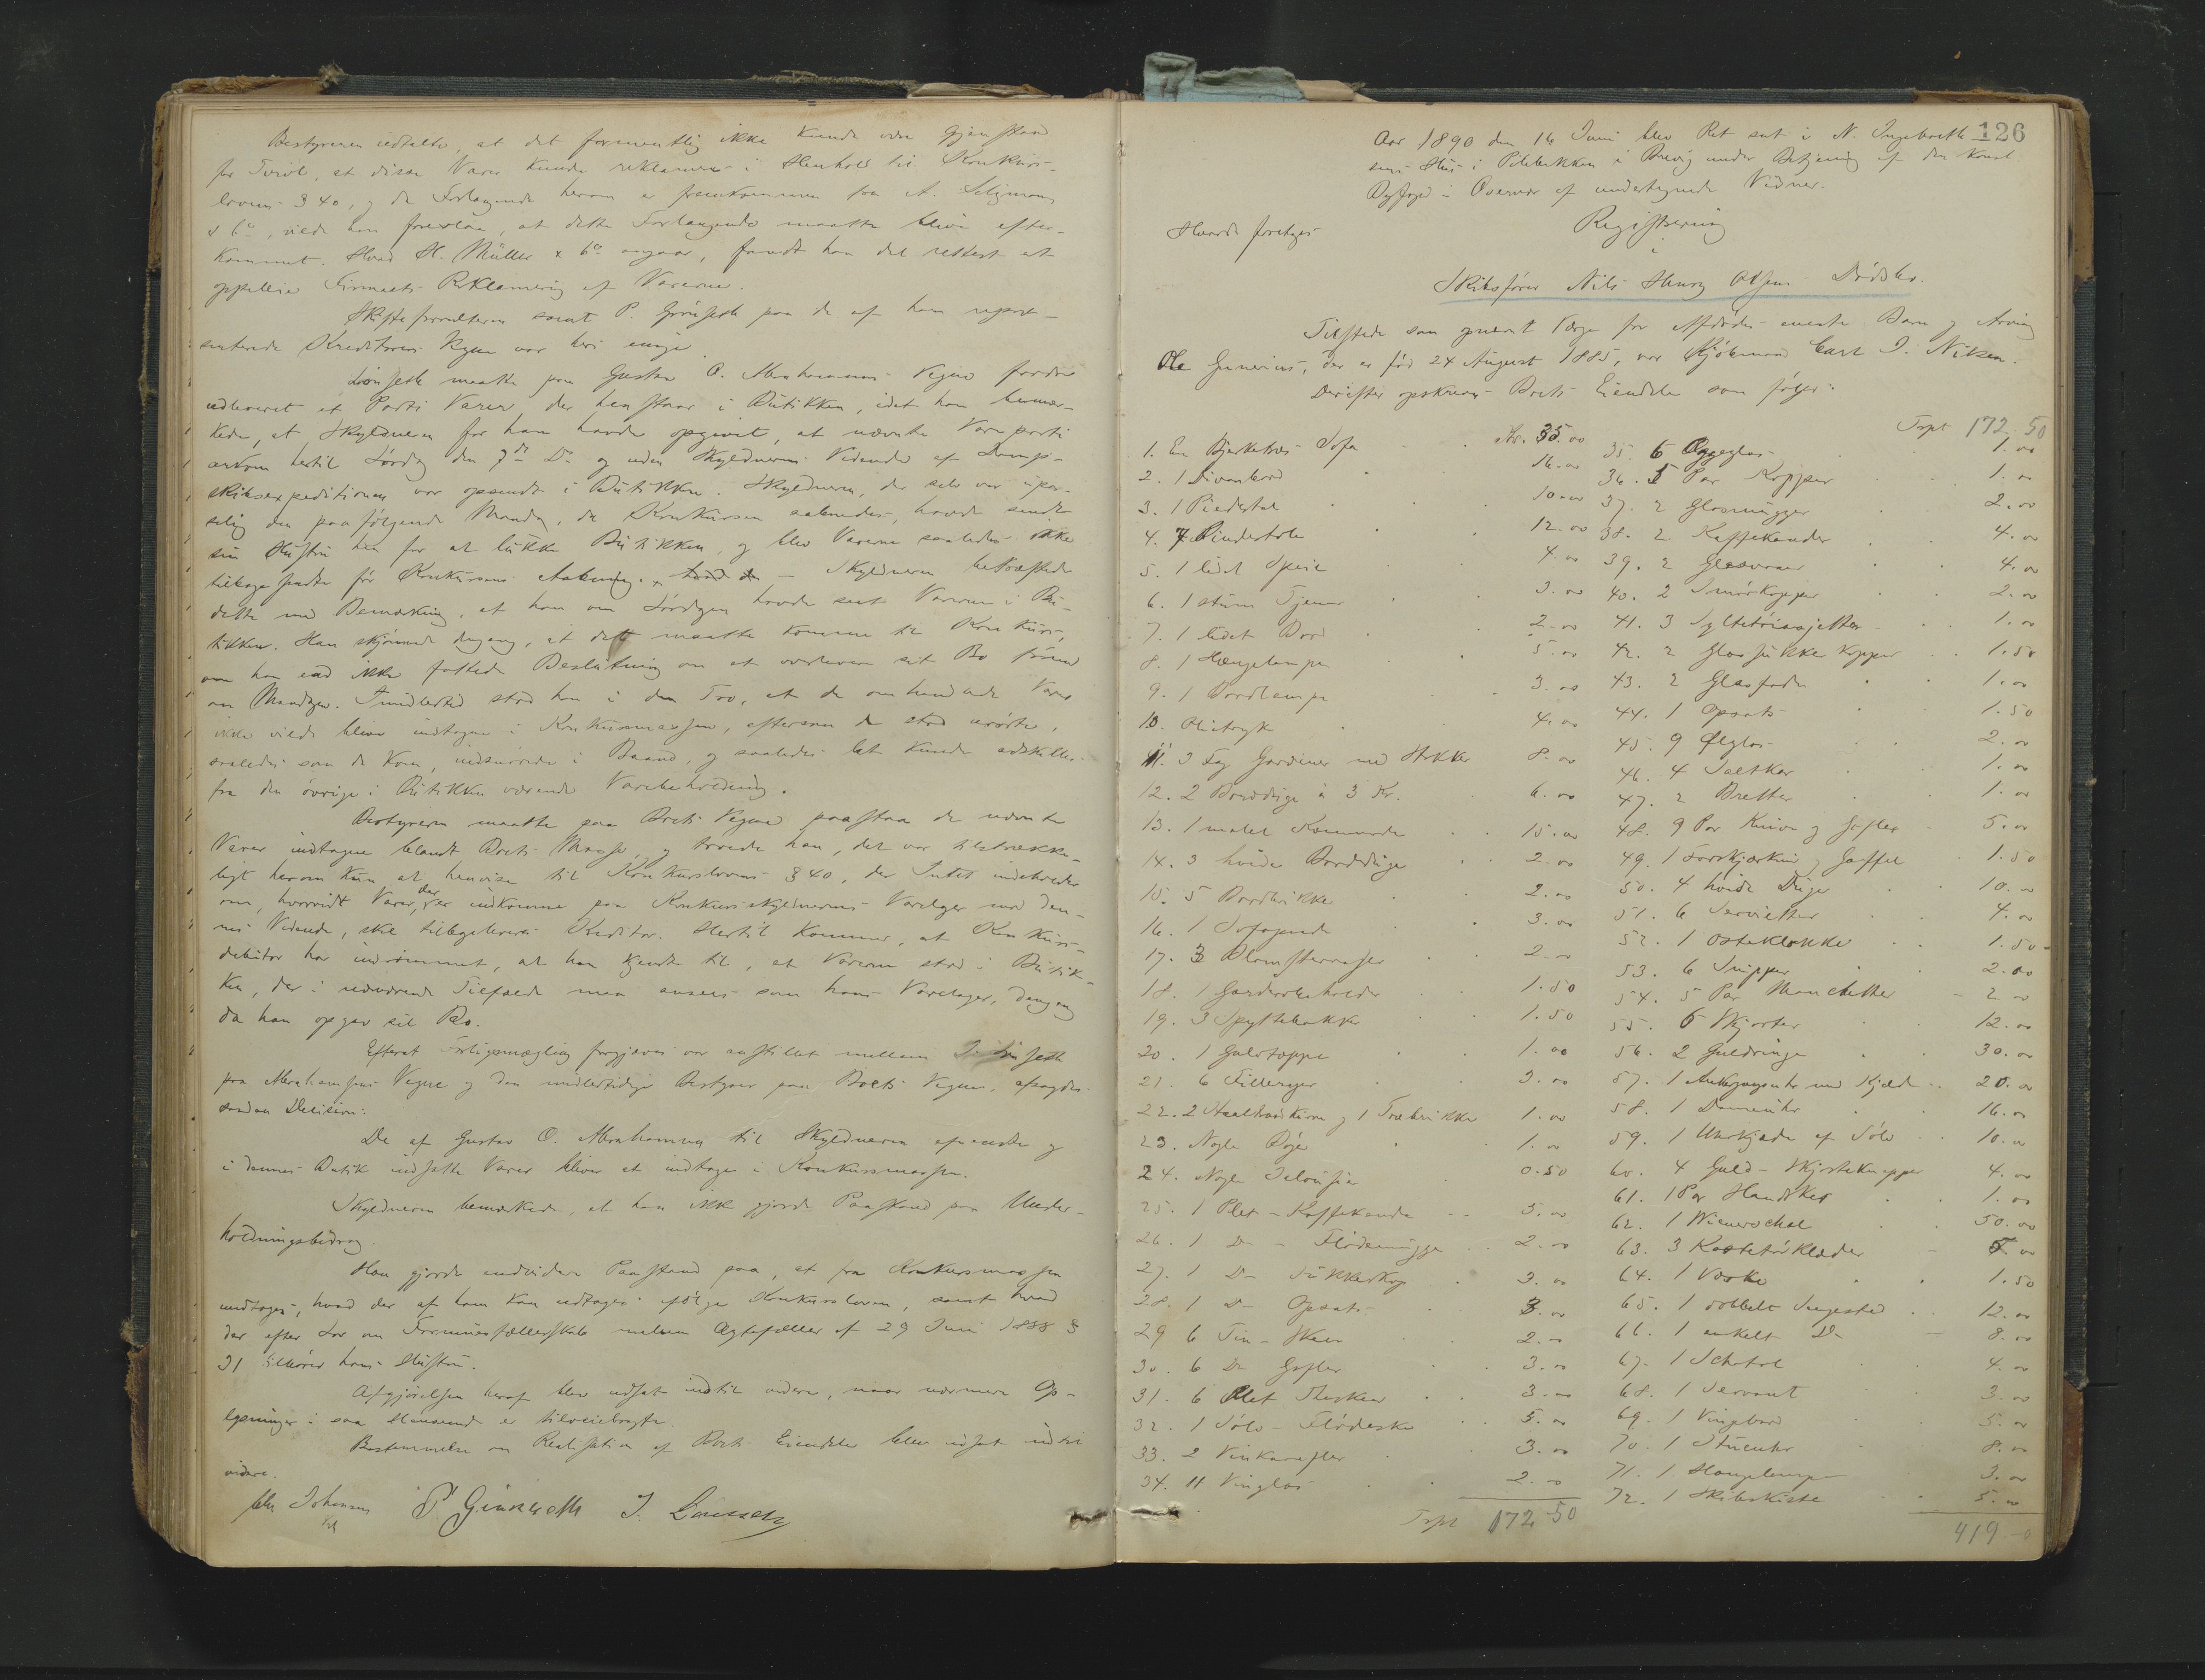 Bestyreren udtalte, at det formentlig ikke kunde være Gjenstand
for Tvivl, at disse Varer kunde reklameres i Henhold til Konkurs-
lovens § 40, og da Forlangende herom er fremkommen fra A. Seligmann
& Co, vilde han foreslaa, at dette Forlangende maatte blive efter-
kommet. Hvad H. Müller & Co angaar, fandt han det rettest at
Firmaets Reklamering af Varerne.
Skifteforvalteren samt P. Grönseth paa de af ham repræ-
senterede Kreditorers Vegne var heri enige.
maatte paa Gustav O. Abrahamsens Vegne fordre
udleveret et Parti Varer, der henstaar i Butikken, idet han bemær-
kede, at Skyldneren for ham havde opgivet, at nævnte Vareparti
ankom hertil Lördag den 7de Ds og uden Skyldnerens Vidende af Damp-
skibsexpeditionen var opsendt i Butikken. Skyldneren, der selv var upas-
selig den paafölgende Mandag, da Konkursen aabnedes, havde sendt
sin Hustru hen for at lukke Butikken, og blev Varerne saaledes ikke
tilbagesendte för Konkursens Aabning. – Skyldneren bekræftede
dette med Bemærkning, at han om Lördagen havde seet Varerne i Bu-
tikken. Han skjönnede dengang, at det maatte komme til Konkurs,
om han end ikke fattede Beslutning om at overlevere sit Bo förend
om Mandagen. Imidlertid stod han i den Tro, at de omhandlede Varer
ikke vilde blive indtagne i Konkursmassen, eftersom de stod urörte,
saaledes som de kom, indsnörede i Baand, og saaledes let kunde adskilles
fra den övrige i Butikken værende Varebeholdning.
Bestyreren maatte paa Boets Vegne paastaa de nævnte
Varer indtagne blandt Boets Masse, og troede han, det var tilstrække-
ligt herom kun at henvise til Konkurslovens § 40, der Intet indeholder
om, hvorvidt Varer, der er indkomne paa Konkursskyldnerens Varelager med den-
nes Vidende, skal tilbageleveres Kreditor. Hertil kommer, at Konkurs-
debitor har indrömmet, at han kjendte til, at Varerne stod i Butik-
ken, der i nærværende Tilfælde maa ansees som hans Varelager, dengang
da han opgav sit Bo.
Efterat Forligsmægling forgjæves var anstillet mellem
paa Abrahamsens Vegne og den midlertidige Bestyrer paa Boets Vegne, afsagdes
saadan Decision:
De af Gustav O. Abrahamsen til Skyldneren afsendte og
i dennes Butik indsatte Varer bliver at indtage i Konkursmassen.
Skyldneren bemærkede, at han ikke gjorde Paastand paa Under-
holdningsbidrag.
Han gjorde endvidere Paastand paa, at fra Konkursmassen
undtages, hvad der af ham kan udtages ifölge Konkursloven, samt hvad
der efter Lov om Formuesfællesskab mellem Ægtefæller af 29 Juni 1888 §
31 tilhörer hans Hustru.
Afgjörelsen heraf blev udsat indtil videre, naar nærmere Op-
lysninger i saa Henseende er tilveiebragte.
Bestemmelse om Realisation af Boets Eiendele blev udsat indtil
videre.
Johansen P. Grönseth J.
126
Aar 1890 den 16 Juni blev Ret sat i N. Ingebreth-
sens Hus i Pilebakken i Brevig under Betjening af den konst.
Byfoged i Overvær af undertegnede Vidner.
Hvorda foretoges
Registrering
i
Skibsförer Nils Henry Olsens Dödsbo.
Tilstede som opnævnt Værge for Afdödes eneste Barn og Arving
Ole Gunerius, der er föd 24 August 1885, var Kjöbmand Carl J. Nilsen.
Derefter opskreves Boets Eiendele som fölger:
1. En Bjerketræs Sofa Kr. 35.00
2. 1 Divanbord 16.00
3. 1 Piedestal 10.00
4. 7 Pindestole 12.00
5. 1 lidet Speil 4.00
6. 1 stum Tjener 3.00
7. 1 lidet Bord 2.00
8. 1 Hængelampe 5.00
9. 1 Bordlampe 3.00
10. Olietryk 4.00
11. 3 Fag Gardiner med Stokke 8.00
12. 2 Bordduge à 3 Kr. 6.00
13. 1 malet Kommode 15.00
14. 3 hvide Bordduge 2.00
15. 5 Bordbrikker 2.00
16. 1 Sofapude 3.00
17. 3 Blomstervaser 2.00
18. 1 Garderobeholder 1.50
19. 3 Spyttebakker 1.50
20. 1 Gulvtæppe 1.00
21. 6 Filleryer 3.00
22. 2 og 1 Træbrikke 1.00
23. Nogle Böger 1.00
24. Nogle Jalousier 0.50
25. 1 Plet-Kaffekande 5.00
26. 1 Do - Flödemugge 2.00
27. 1 Do Sukkerkop 3.00
28. 1 Do Opsats 3.00
29 6 Tin-Skeer 2.00
30. 6 Do Gafler 3.00
31. 6 Plet Theskeer 3.00
32. 1 Sölv-Flödeske 5.00
33. 2 Vinkarafler 3.00
34. 11 Vinglas 2.00
Trpt 172.50
Trpt 172.50
35. 6 Æggeglas 1.00
36. 5 Par Kopper 1.00
37. 2 Glasmugger 2.00
38. 2 Kaffekander 4.00
39. 2 4.00
40. 2 Smörkopper 2.00
41. 3 Syltetöiasjetter 1.00
42. 2 Glassukkerkopper 1.50
43. 2 Glasfade 1.00
44. 1 Opsats 1.50
45. 9 Ölglas 2.00
46. 4 Saltkar 1.00
47. 2 Bretter 1.00
48. 9 Par Knive og Gafler 5.00
49. 1 Forskjærkniv og Gaffel 1.50
50. 4 hvide Duge 10.00
51. 6 Servietter 4.00
52. 1 Osteklokke 1.50
53. 6 Snipper 2.00
54. 5 Par Manchetter 2.00
55. 6 Skjorter 12.00
56. 2 Guldringe 30.00
57. 1 med Kjæde 20.00
58. 1 Dameuhr 16.00
59. 1 Uhrkjæde af Sölv 10.00
60. 4 Guld-Skjorteknapper 4.00
61. 1 Par Handsker 1.00
62. 1 Wienerschal 50.00
63. 3 Kastetörklæder
64. 1 Væske 1.50
65. 1 dobbelt Sengested 12.00
66. 1 enkelt Do 8.00
67. 1 4.00
68. 1 Servant 3.00
69. 1 Vingebord 5.00
70. 1 Stueuhr 8.00
71. 1 Hængelampe 3.00
72. 1 Skibskiste 5.00
419